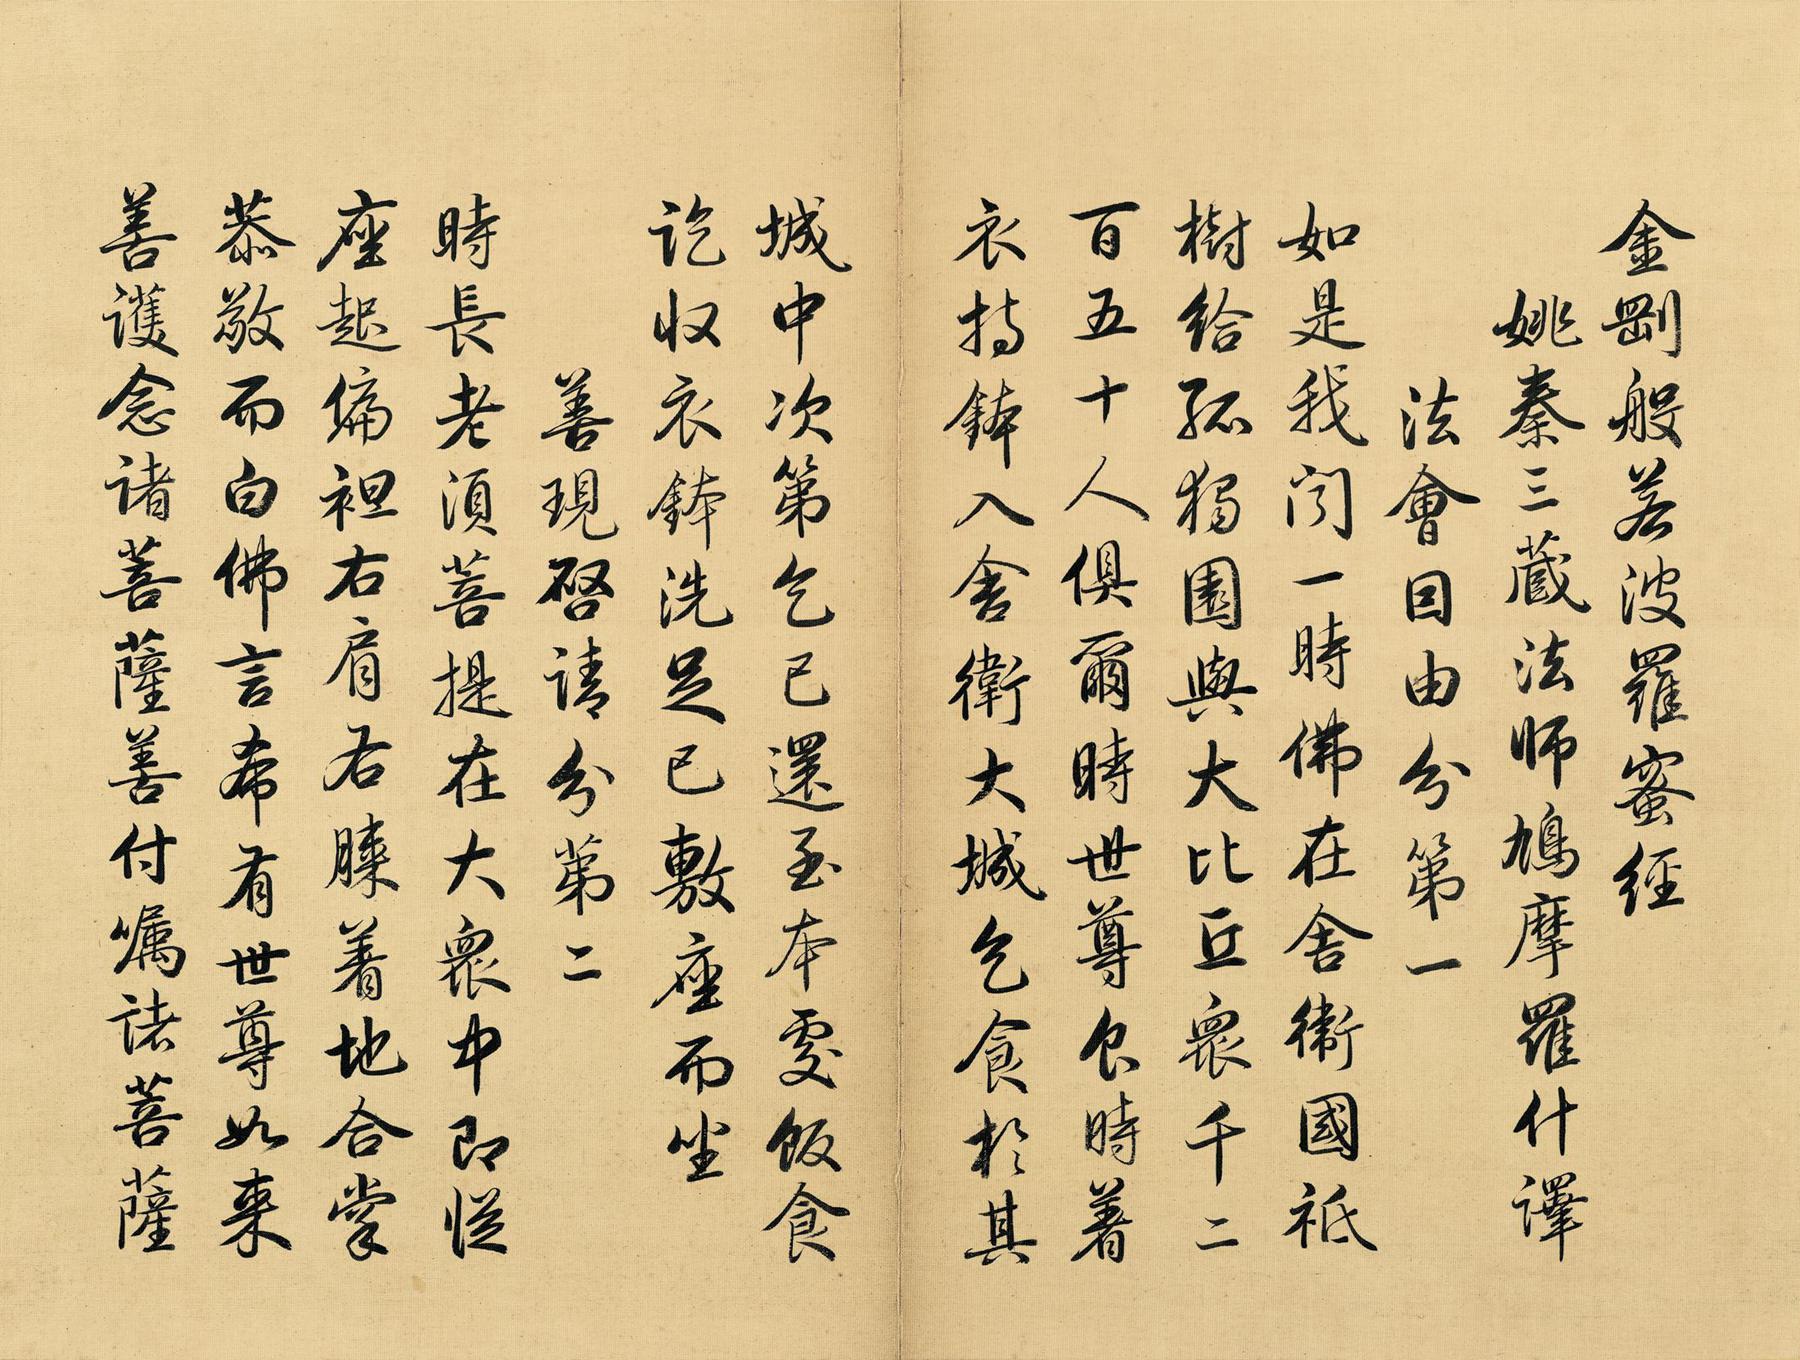 金剛般若波羅蜜經
姚秦三藏法師鳩摩羅什譯
法會因由分第一
如是我聞一時佛在舍衛國祇
樹給孤獨園與大比丘眾千二
百五十人俱爾時世尊食時著
衣持鉢入舍衛大城乞食於其
城中次第乞已還至本處飯食
訖收衣鉢洗足已敷座而坐
善現啓請分第二
時長老須菩提在大眾中即從
座起偏袒右肩右膝着地合掌
恭敬而白佛言希有世尊如来
善護念諸菩薩善付囑諸菩薩